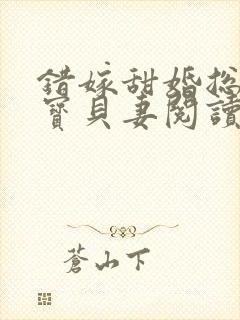 錯嫁甜婚總
寶貝妻閱讀
蒼山下